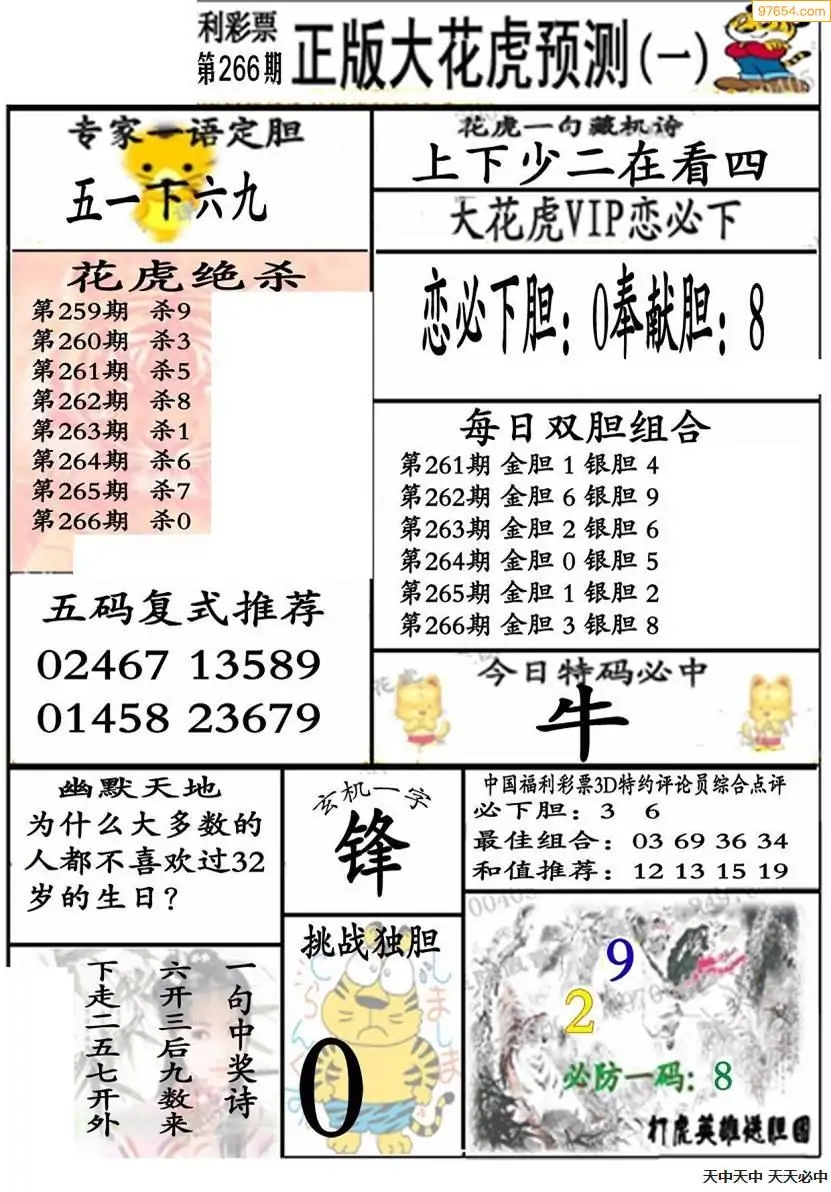 97654.com
利彩票
第266期
正版大花虎预测(一)
专家一语定胆
五一下六九
花虎一句藏机诗
上下少二在看四
大花虎VIP恋必下
恋必下胆：0奉献胆：8
花虎绝杀
第259期 杀9
第260期 杀3
第261期 杀5
第262期 杀8
第263期 杀1
第264期 杀6
第265期 杀7
第266期 杀0
每日双胆组合
第261期 金胆 1 银胆 4
第262期 金胆 6 银胆 9
第263期 金胆 2 银胆 6
第264期 金胆 0 银胆 5
第265期 金胆 1 银胆 2
第266期 金胆 3 银胆 8
五码复式推荐
02467 13589
01458 23679
今日特码必中
牛
幽默天地
为什么大多数的
人都不喜欢过32
岁的生日？
玄机一字
锋
中国福利彩票3D特约评论员综合点评
必下胆：3 6
最佳组合：03 69 36 34
和值推荐：12 13 15 19
一句中奖诗
六开三后九数来
下走二五七开外
挑战独胆
0
9
2
必防一码：8
打虎英雄送胆图
天中天中 天天必中